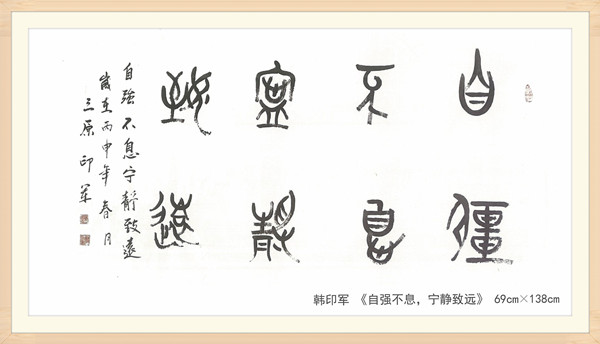 自彊
不息
寧靜
致遠
自強不息宁靜致遠
歲在丙申年春月
三原印军
韩印军 《自强不息，宁静致远》 69cm×138cm